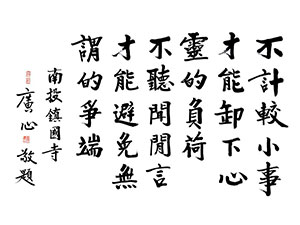 不計較小事
才能卸下心
靈的負荷
不聽閒言
才能避免無
謂的爭端
南投鎮國寺
廣心敬題